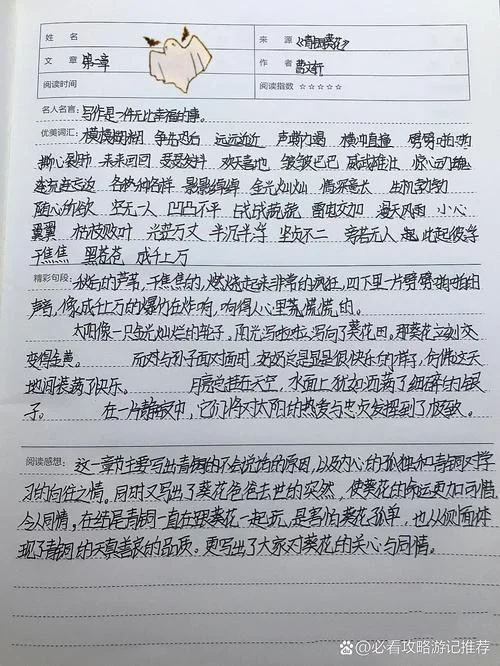 姓 名 来 源 《青铜葵花》
文 章 第一章 作 者 曹文轩
阅读时间 阅读指数 ☆☆☆☆☆
名人名言: 写作是一件无比幸福的事。
优美词汇: 模模糊糊 争先恐后 远远近近 声嘶力竭 横冲直撞 劈劈啪啪
撕心裂肺 来来回回 瑟瑟发抖 欢天喜地 皱皱巴巴 威武雄壮 惊心动魄
连泥连水 各种各样 影影绰绰 金光灿灿 情深意长 生机勃勃
随心所欲 空无一人 凹凹不平 战战兢兢 雷电交加 漫天风雨 小心
翼翼 枯枝败叶 光芒万丈 半沉半浮 坚贞不二 旁若无人 此起彼伏
干焦焦 黑苍苍 成千上万
精彩句段: 秋后的芦苇,干焦焦的,燃烧起来非常的疯狂,四下里一片劈劈啪啪的
声音,像成千上万的爆竹在炸响,响得人心里荒慌慌的。
太阳像一只金光灿烂的轮子,阳光泻啦啦泻向了葵花田。那葵花立刻变
变得金黄。 而对与孙子面对面时,奶奶总是显得很快乐的样子,仿佛这天
地间装满了快乐。 月亮总挂在天空,水面上犹如洒满了细碎的银
子。 在一片静寂中,它们将对太阳的热爱与忠贞发挥到了极致。
阅读感想: 这一章节主要写出青铜的不会说话的原因,以及内心的孤独和青铜对学
习的向往之情。同时又写出了葵花爸爸去世的突然,使葵花的命运更加可惜
令人同情。在结尾青铜一直在跟葵花一起玩,是害怕葵花孤单,也从侧面体
现了青铜的天真善良的品质。更写出了大家对葵花的关心与同情。
@必看攻略游记推荐